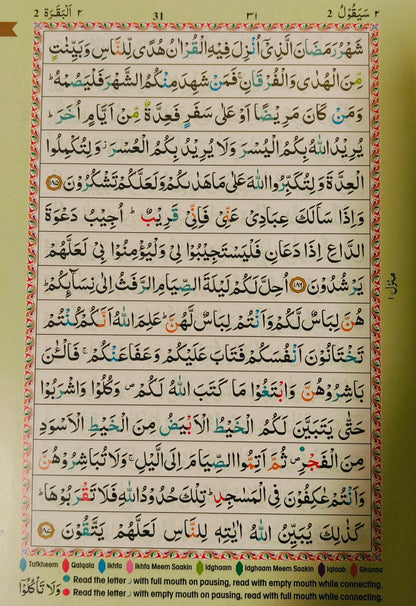 ٢ سَيَقُوْلُ 2 ٣١ 31 ٢ اَلْبَقَرَة 2
شَهْرُ رَمَضَانَ الَّذِىْۤ اُنْزِلَ فِيْهِ الْقُرْاٰنُ هُدًى لِّلنَّاسِ وَ بَيِّنٰتٍ
مِّنَ الْهُدٰى وَالْفُرْقَانِۚ فَمَنْ شَهِدَ مِنْكُمُ الشَّهْرَ فَلْيَصُمْهُؕ
وَمَنْ كَانَ مَرِيْضًا اَوْ عَلٰى سَفَرٍ فَعِدَّةٌ مِّنْ اَيَّامٍ اُخَرَؕ
يُرِيْدُ اللّٰهُ بِكُمُ الْيُسْرَ وَلَا يُرِيْدُ بِكُمُ الْعُسْرَؗ وَلِتُكْمِلُوا
الْعِدَّةَ وَلِتُكَبِّرُوا اللّٰهَ عَلٰى مَا هَدٰٮكُمْ وَلَعَلَّكُمْ تَشْكُرُوْنَ ۝١٨٥
وَاِذَا سَاَلَكَ عِبَادِىْ عَنِّىْ فَاِنِّىْ قَرِيْبٌؕ اُجِيْبُ دَعْوَةَ
الدَّاعِ اِذَا دَعَانِ فَلْيَسْتَجِيْبُوْا لِىْ وَلْيُؤْمِنُوْا بِىْ لَعَلَّهُمْ
يَرْشُدُوْنَ ۝١٨٦ اُحِلَّ لَكُمْ لَيْلَةَ الصِّيَامِ الرَّفَثُ اِلٰى نِسَآئِكُمْؕ
هُنَّ لِبَاسٌ لَّكُمْ وَاَنْتُمْ لِبَاسٌ لَّهُنَّؕ عَلِمَ اللّٰهُ اَنَّكُمْ كُنْتُمْ
تَخْتَانُوْنَ اَنْفُسَكُمْ فَتَابَ عَلَيْكُمْ وَعَفَا عَنْكُمْۚ فَالْـٰٔنَ
بَاشِرُوْهُنَّ وَابْتَغُوْا مَا كَتَبَ اللّٰهُ لَكُمْ وَكُلُوْا وَاشْرَبُوْا
حَتّٰى يَتَبَيَّنَ لَكُمُ الْخَيْطُ الْاَبْيَضُ مِنَ الْخَيْطِ الْاَسْوَدِ
مِنَ الْفَجْرِ ثُمَّ اَتِمُّوا الصِّيَامَ اِلَى الَّيْلِۚ وَلَا تُبَاشِرُوْهُنَّ
وَاَنْتُمْ عٰكِفُوْنَ فِى الْمَسٰجِدِؕ تِلْكَ حُدُوْدُ اللّٰهِ فَلَا تَقْرَبُوْهَاؕ
كَذٰلِكَ يُبَيِّنُ اللّٰهُ اٰيٰتِهٖ لِلنَّاسِ لَعَلَّهُمْ يَتَّقُوْنَ ۝١٨٧
منزل ١
Tatkheem Qalqala Ikhfa Ikhfa Meem Saakin Idghaam Idghaam Meem Saakin Iqlaab Ghunna
Read the letter ر with full mouth on pausing, read with empty mouth while connecting.
Read the letter ر with empty mouth on pausing, read with full mouth while connecting.
وَلَا تَاْكُلُوْٓا